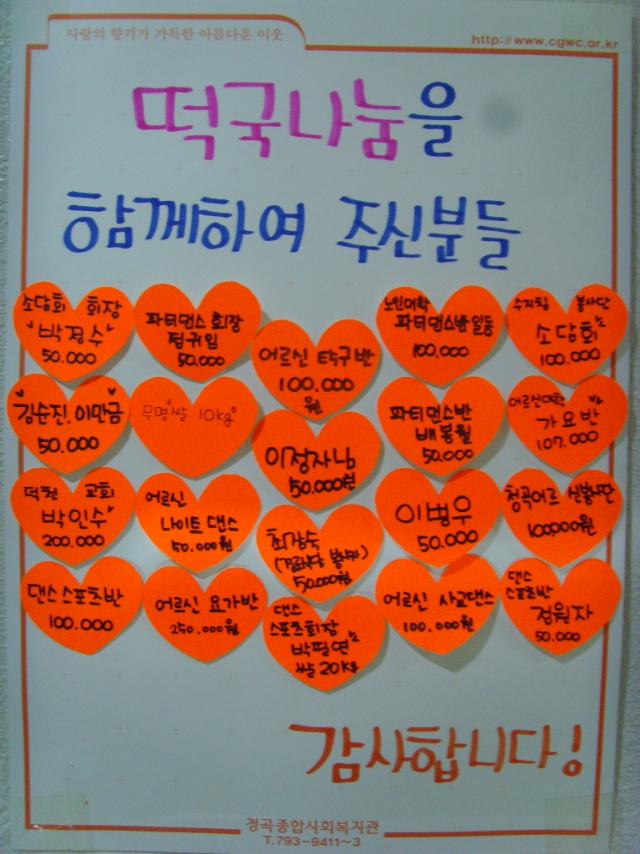 사랑의 향기가 가득한 아름다운 이웃
http://www.cgwc.or.kr
떡국나눔을
함께하여 주신분들
소담회 회장
박정수
50.000
파티댄스 회장
정귀임
50.000
어르신 탁구반
100.000
원
노인대학
파티댄스반일동
100.000
수지침 봉사단
소담회
100.000
김순진, 이만금
50.000
무명 쌀 10kg
이정자님
50.000원
파티댄스반
배봉월
50.000
어르신대학
가요반
107.000
덕천 교회
박인수
200.000
어르신
나이트 댄스
50.000원
최강숙
50.000원
이병우
50.000
청곡어르신봉사단
100.000원
댄스 스포츠반
100.000
어르신 요가반
250.000원
댄스
스포츠회장
박필연
쌀 20kg
어르신 사교댄스
100.000원
댄스
스포츠반
정원자
50.000
감사합니다!
청곡종합사회복지관
T.793-9411~3